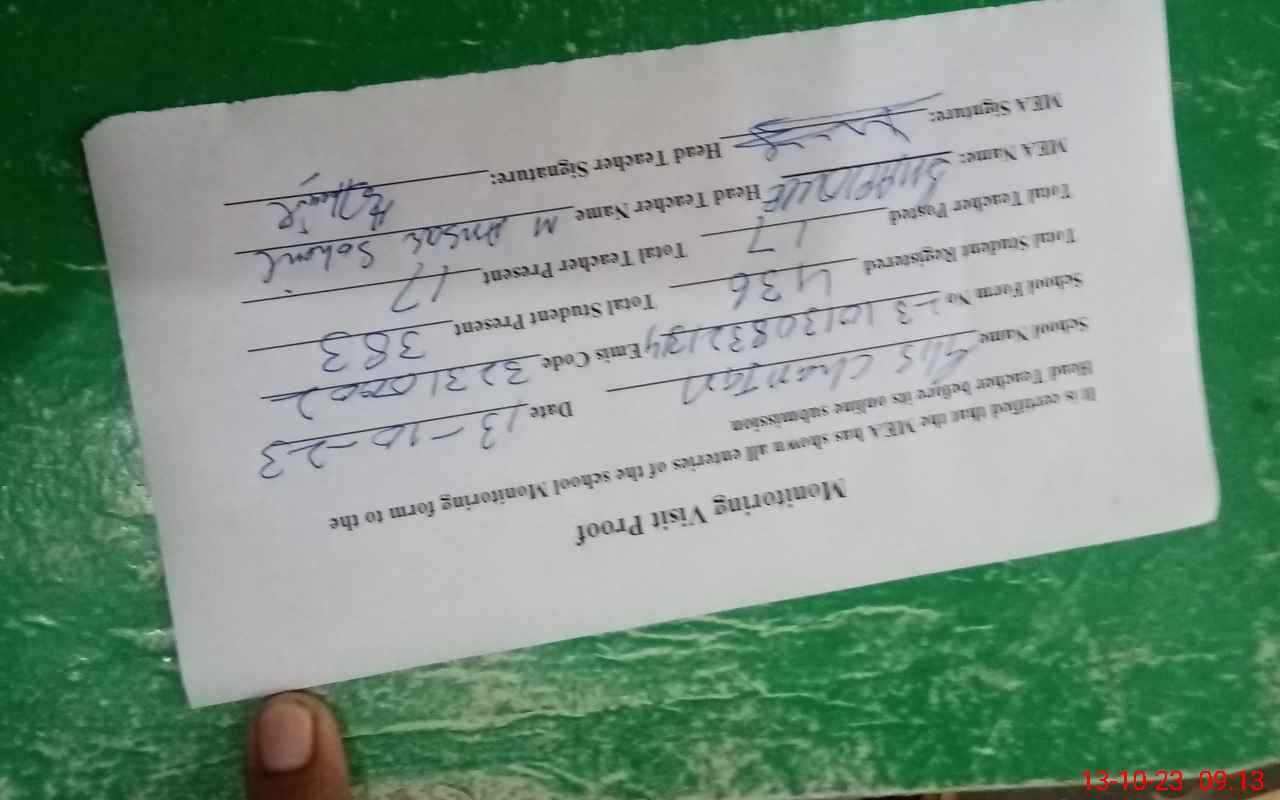 Monitoring Visit Proof
It is certified that the MEA has shown all enteries of the school Monitoring form to the
Head Teacher before its online submission
School Name GHS Date 13-10-23
School Form No Emis Code
Total Student Registered 436 Total Student Present 383
Total Teacher Posted 17 Total Teacher Present 17
MEA Name: Head Teacher Name M Ansar
MEA Signature: Head Teacher Signature:
13-10-23 09:13